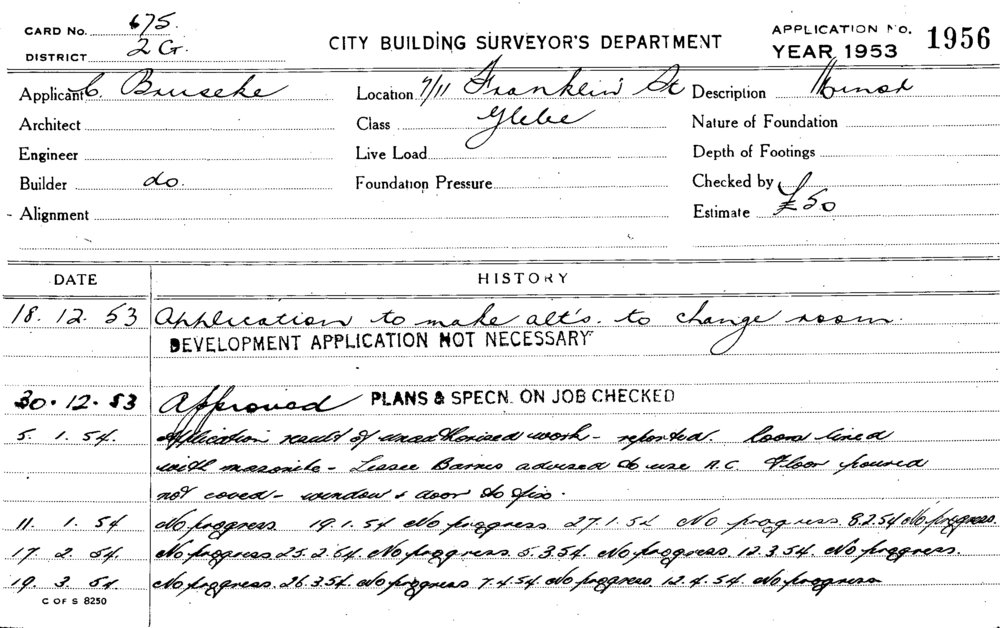 CARD No. 675.
DISTRICT 2 G.
CITY BUILDING SURVEYOR'S DEPARTMENT
APPLICATION No. 1956
YEAR 1953
Applicant C. Bruseke
Location 7/11 Franklin St
Description Minor
Architect
Class Glebe
Nature of Foundation
Engineer
Live Load
Depth of Footings
Builder do.
Foundation Pressure
Checked by
Alignment
Estimate £50
DATE HISTORY
18. 12. 53 Application to make alt's. to change room.
DEVELOPMENT APPLICATION NOT NECESSARY
30.12.53 Approved PLANS & SPECN. ON JOB CHECKED
5. 1. 54. Application result of unauthorised work - reported. Room lined
with masonite - Lessee Barnes advised to use A.C. Floor poured
not coved - window & door to fix.
11. 1. 54 No progress. 19.1.54 No progress. 27.1.54 No progress. 8.2.54 No progress.
17. 2. 54. No progress. 25.2.54. No progress. 5.3.54. No progress. 12.3.54. No progress.
19. 3. 54. No progress. 26.3.54. No progress 7.4.54 No progress. 12.4.54. No progress
C OF S 8250